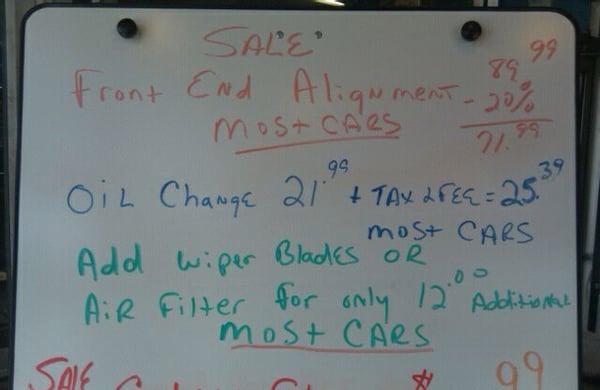 SALE
Front End Alignment 89.99
- 20%
MOST CARS 71.99
OIL Change 21.99 + TAX & FEE = 25.39
most CARS
Add wiper Blades OR
AIR Filter for only 12.00 Additional
MOST CARS
SALE $ 99